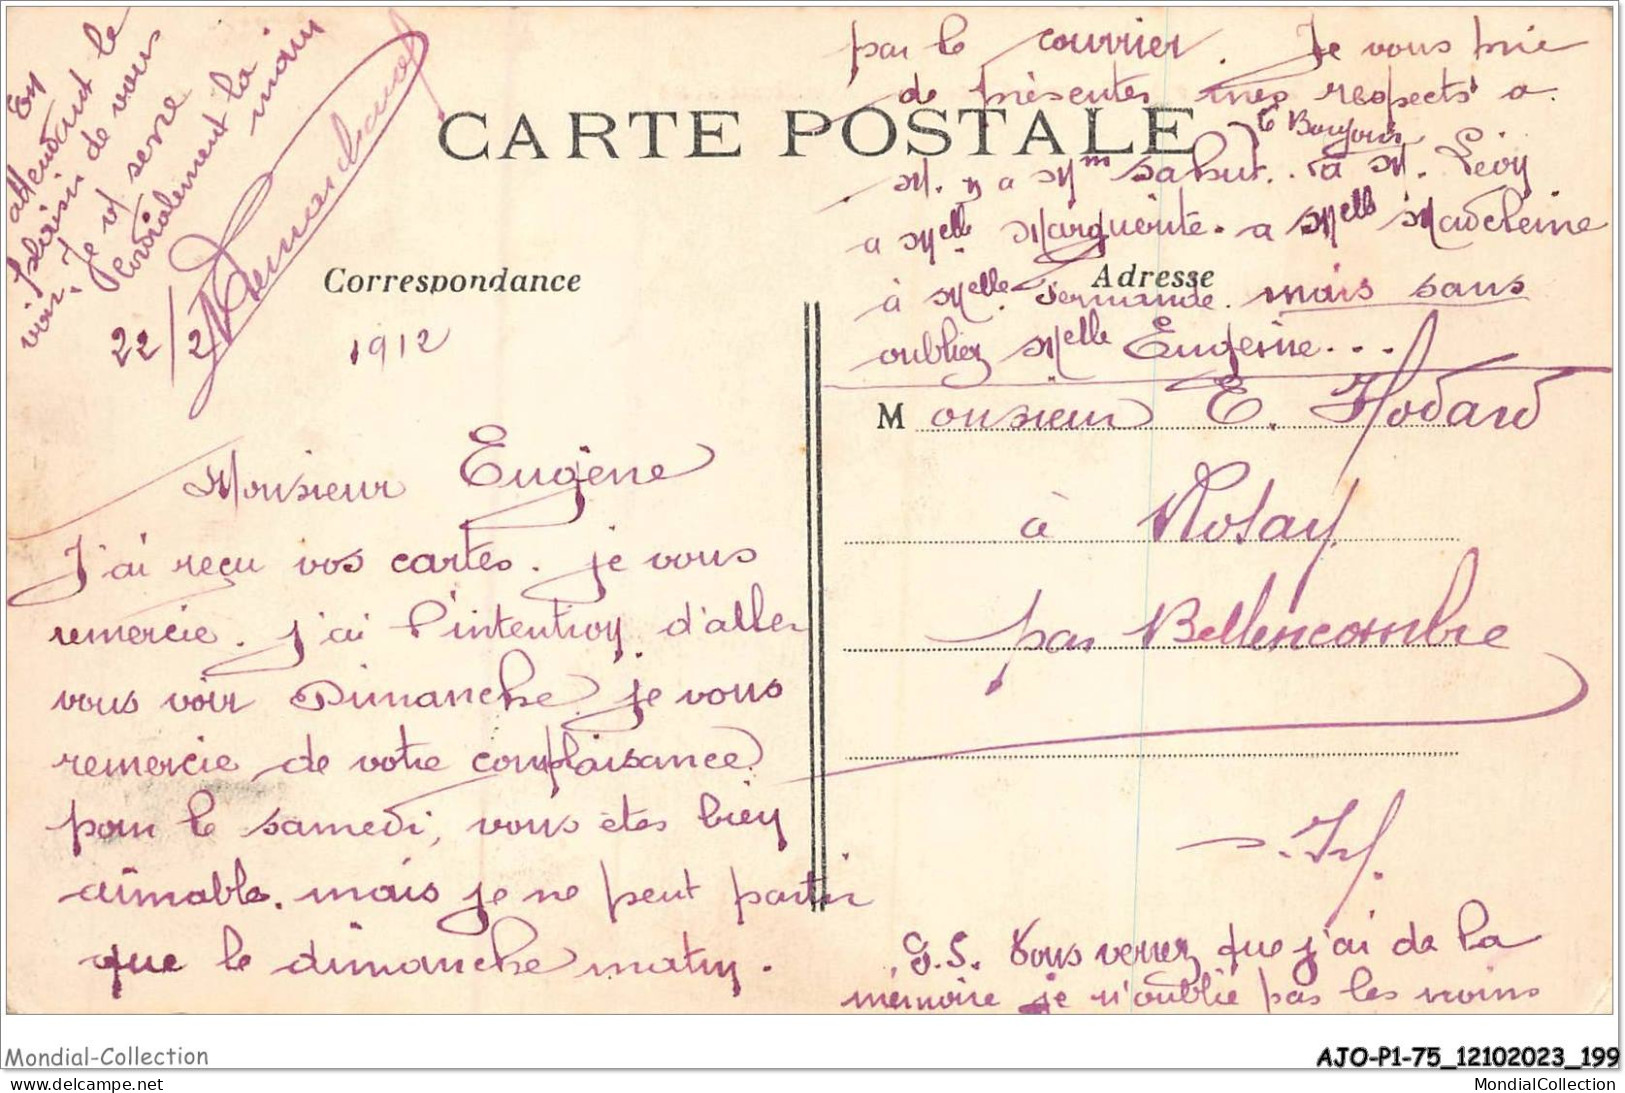 En
attendant le
plaisir de vous
voir. Je
vs serre
cordialement la
main
22/2
1912
CARTE POSTALE
Correspondance
Monsieur Eugène
J'ai reçu vos cartes. je vous
remercie. j'ai l'intention d'aller
vous voir Dimanche je vous
remercie de votre complaisance
pour le samedi, vous êtes bien
aimable. mais je ne peut partir
que le dimanche matin.
par le courrier. Je vous prie
de présentes mes respects a
et Bonjour
M. y a Mm Sahut. à M. Lévy
a Melle Marguerite. a Melle Madeleine
à Melle Germande. mais sans
oublier Melle Eugenie...
Adresse
Monsieur E. Hodard
à Rosay
par Bellencombre
S. If.
P.S. Vous verrez que j'ai de la
mémoire je n'oublie pas les noms
Mondial-Collection
AJO-P1-75_12102023_199
https://www.delcampe.net/fr/collections/store/Mondial-Collection
MondialCollection